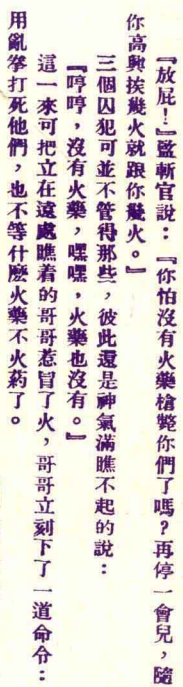 『放屁！』監斬官說：『你怕沒有火藥槍斃你們了嗎？再停一會兒，隨
你高興挨幾火就跟你幾火。』
三個囚犯可並不管得那些，彼此還是神氣滿瞧不起的說：
『哼哼，沒有火藥，嘿嘿，火藥也沒有。』
這一來可把立在遠處瞧着的哥哥惹冒了火，哥哥立刻下了一道命令：
用亂拳打死他們，也不等什麽火藥不火葯了。